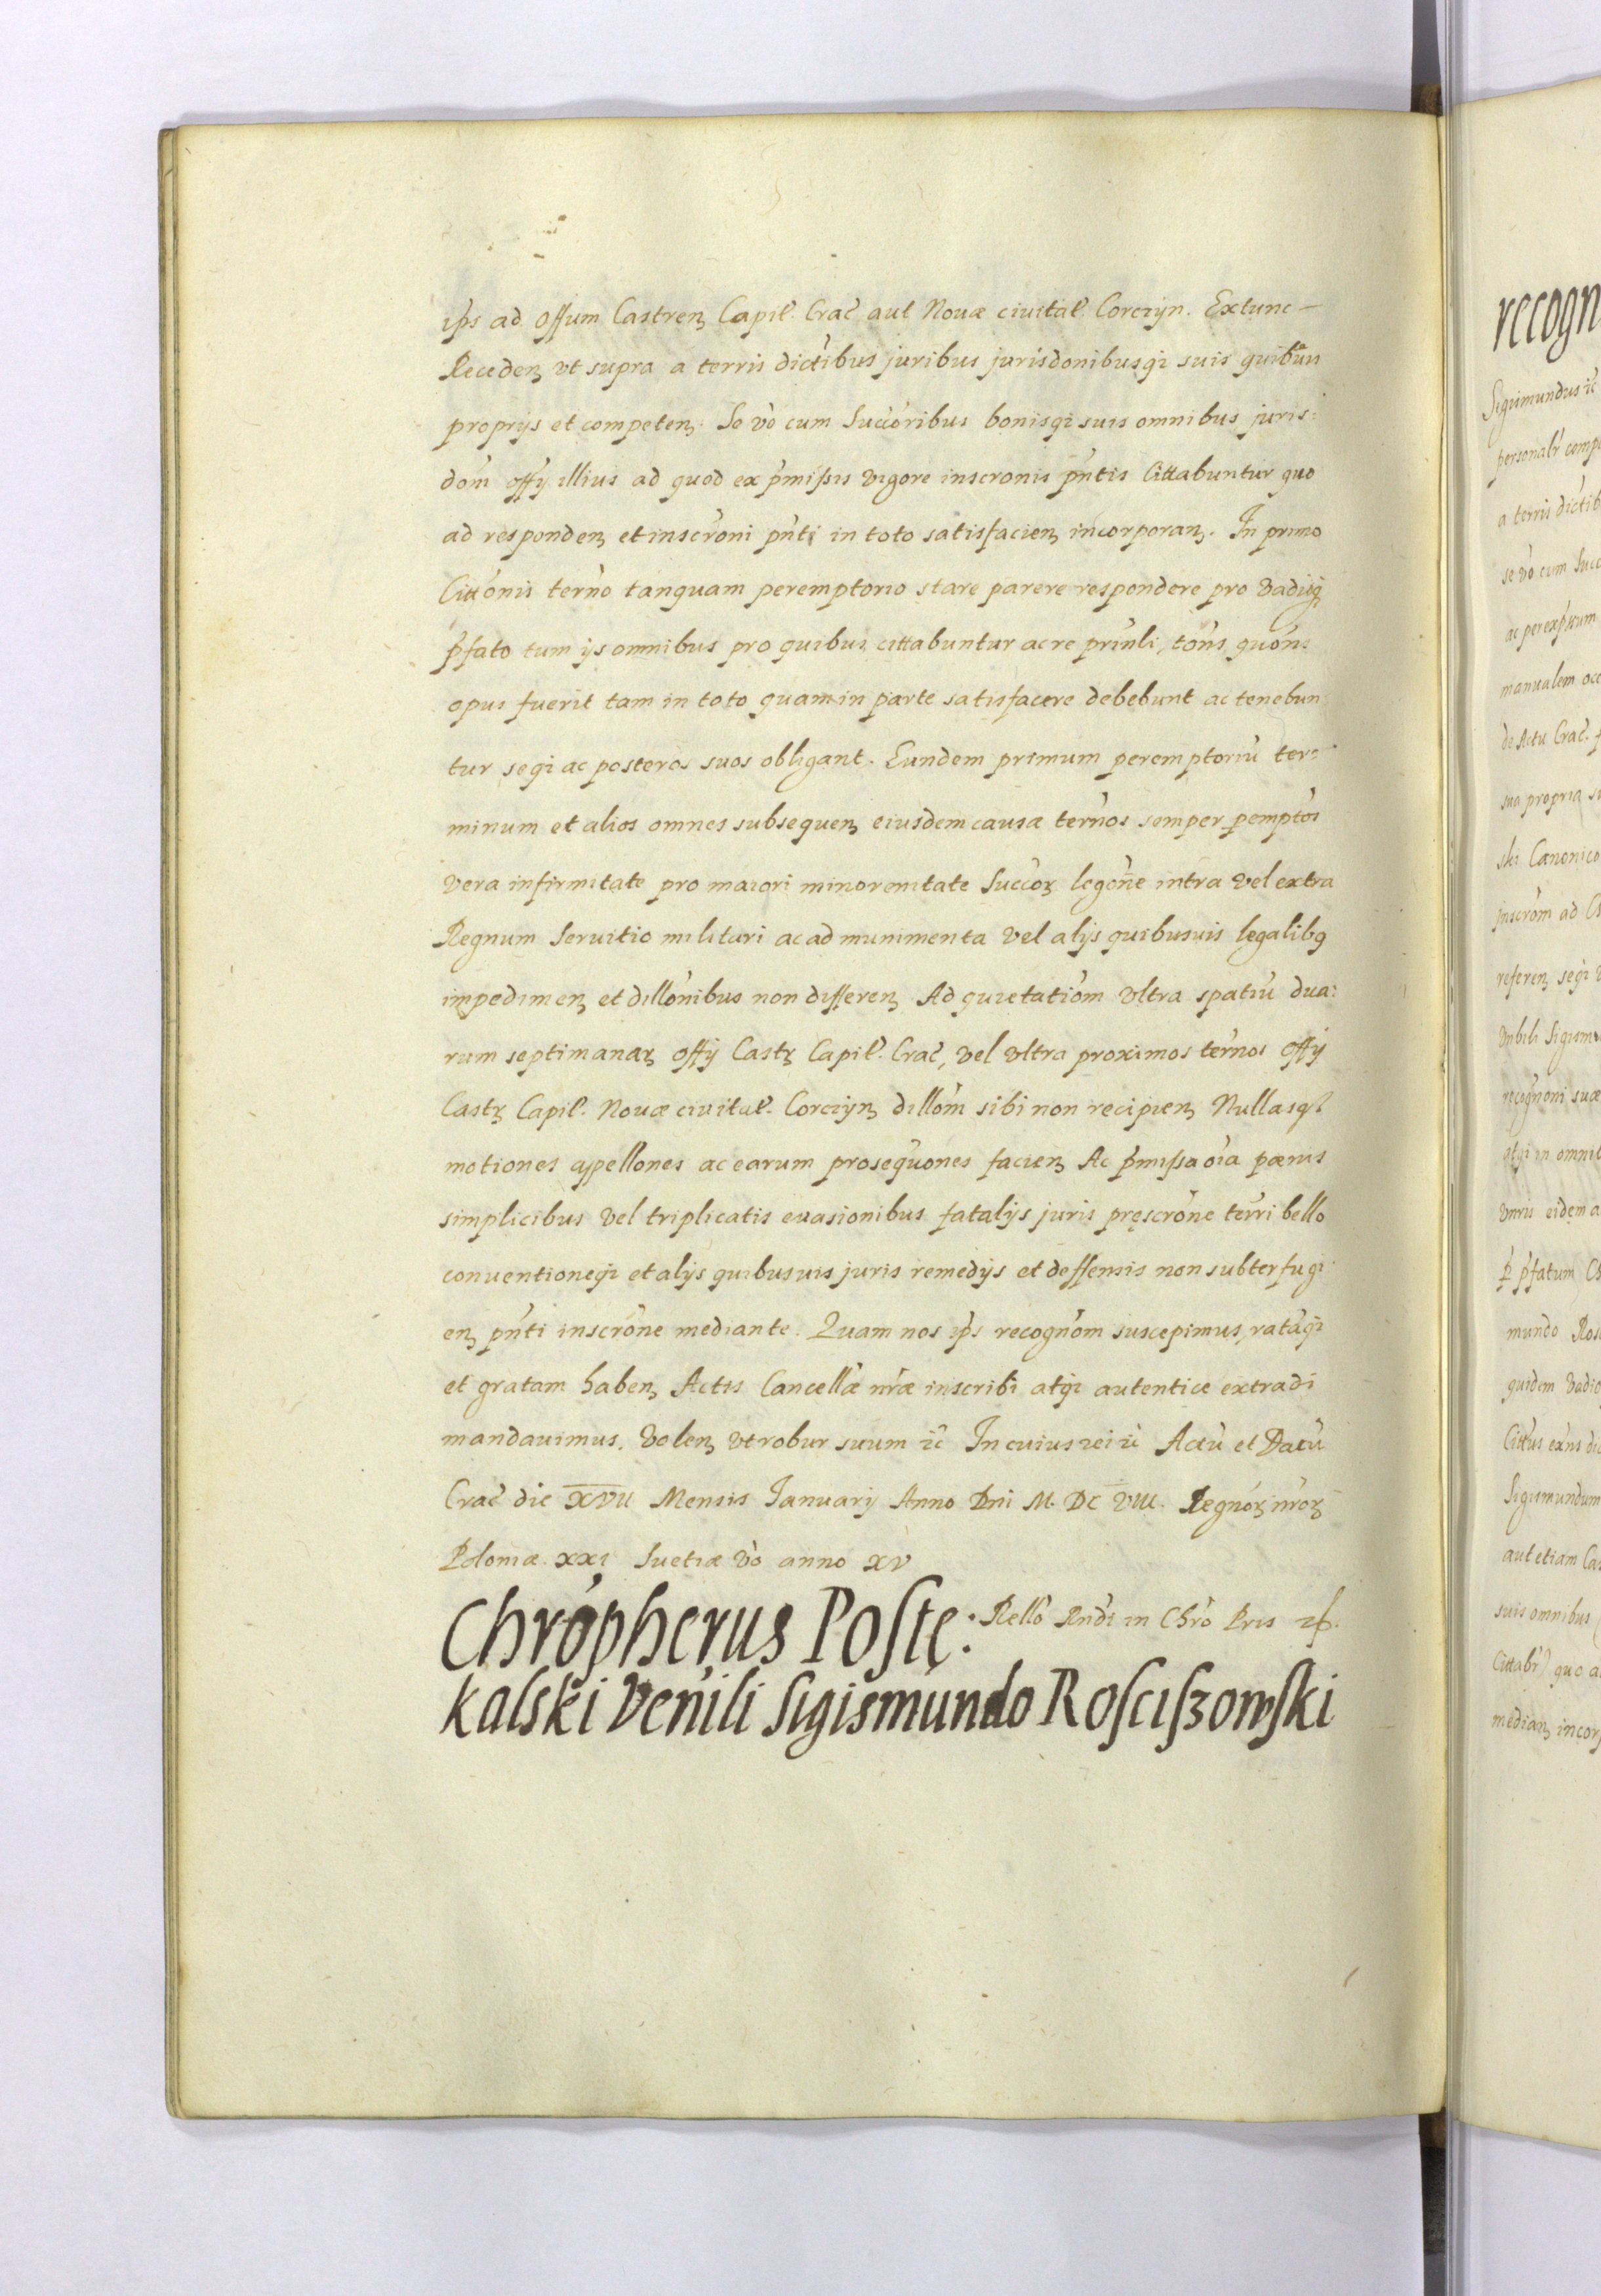 ips ad Offum Castren Capit. Crac aut Novæ civitat. Corczyn. Extunc –
Receden vt supra a terris dictibus juribus jurisdonibusqi suis quibuu
proprijs et competen. Se vo cum Succoribus bonisqi suis omnibus juris:
dom offy illius ad quod ex pmissis vigore inscronis pntis Cittabuntur quo
ad responden et inscroni pnti in toto satisfacien incorporan. In primo
Cittonis terno tanquam peremptorio stare parere respondere pro vadijq
pfato tum ijs omnibus pro quibus cittabuntur ac re prinli, tons quons
opus fuerit tam in toto quam in parte satisfacere debebunt ac tenebun
tur seqi ac posteros suos obligant. Eundem primum peremptoriu ter:
minum et alios omnes subsequen eiusdem causæ ternos semper pemptos
vera infirmitate pro maiori minorenitate Succoꝝ legone intra vel extra
Regnum Servitio militari ac ad munimenta vel alijs quibusuis legalibꝗ
impedimen et dillonibus non differen Ad quietatiom vltra spatiu dua:
rum septimanaꝝ offij Castꝝ Capit. Crac, vel vltra proximos ternos offij
Castꝝ Capit. Novæ civitat. Corczyn dillom sibi non recipien Nullasqꝫ
motiones appellones ac earum prosequones facien Ac pmissa oia pænis
simplicibus vel triplicatis euasionibus fatalijs juris pręscrone terri bello
conuentioneqi et alijs quibusuis juris remedijs et deffensis non subterfugi
en pnti inscrone mediante. Quam nos ips recognom suscepimus, rataqi
et gratam haben Actis Cancellæ nræ inscribi atqi autentice extradi
mandauimus. Volen vt robur suum ꝛc In cuius rei ꝛc Actu et Datu
Crac die XVII Mensis Ianuarij Anno Dni M. DC VIII. Regnoꝝ nroꝝ
Poloniæ XXI Suetiæ vo anno XV
Chropherus Poſtę:
Rello Rndi in Chro Pris
kalski Venili Sigismundo Roſciſzowſki
recogn
Sigismundus ꝛc
personalr comp
a terris dictib
se vo cum Succ
manualem occ
de Actu Crac.
sua propria
ski Canonico
inscrom ad
referen seqi
Nobili Sigism
recognoni suæ
atqi in omnib
eidem a
pfatum Ch
mundo Ros
quidem vadio
Sigismundum
aut etiam Ca
suis omnibus
Cittabr quo a
median incor